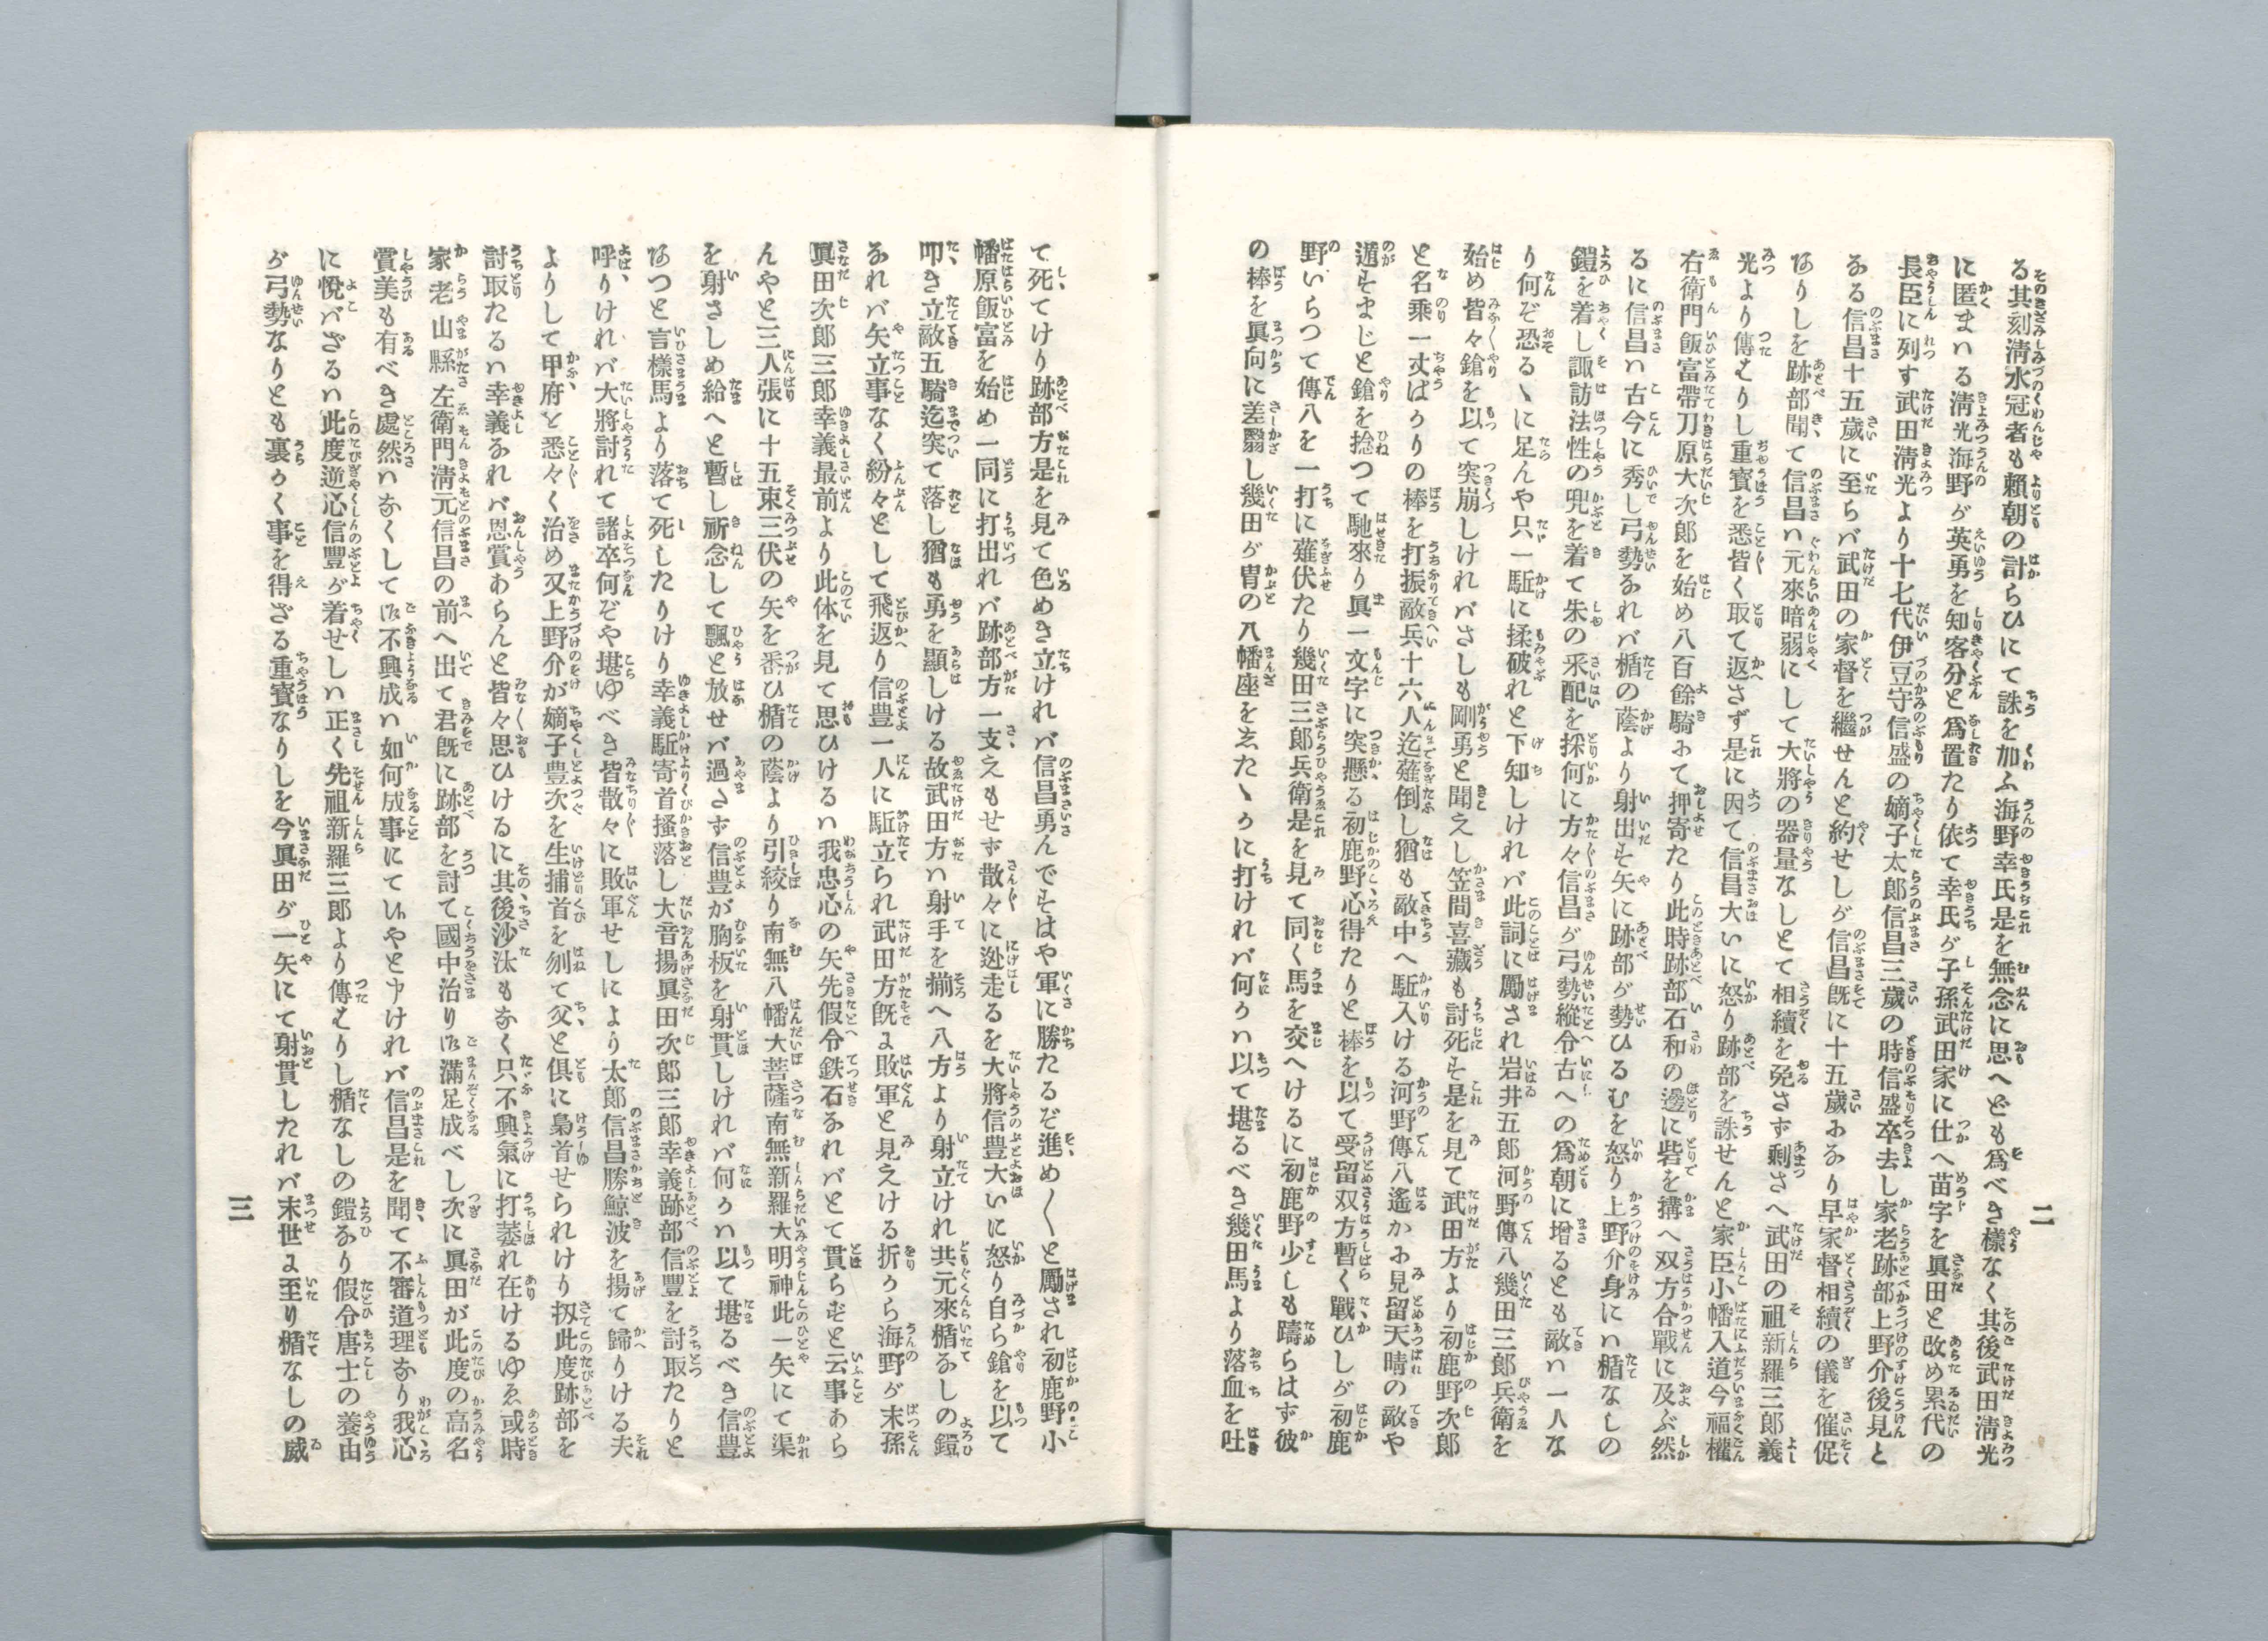 二
る其刻淸水冠者も賴朝の計らひにて誅を加ふ海野幸氏是を無念に思へども爲べき樣なく其後武田淸光
に匿まハる淸光海野が英勇を知客分と爲置たり依て幸氏が子孫武田家に仕へ苗字を眞田と改め累代の
長臣に列す武田淸光より十七代伊豆守信盛の嫡子太郎信昌三歲の時信盛卒去し家老跡部上野介後見と
なる信昌十五歲に至らバ武田の家督を繼せんと約せしが信昌既に十五歲なり早家督相續の儀を催促
なりしを跡部聞て信昌ハ元來暗弱にして大將の器量なしとて相續を免さず剩さへ武田の祖新羅三郎義
光より傳はりし重寳を悉皆く取て返さず是に因て信昌大いに怒り跡部を誅せんと家臣小幡入道今福權
右衛門飯富帶刀原大次郎を始め八百餘騎にて押寄たり此時跡部石和の邊に砦を搆へ双方合戰に及ぶ然
るに信昌ハ古今に秀し弓勢なれバ楯の蔭より射出す矢に跡部が勢ひるむを怒り上野介身にハ楯なしの
鎧を着し諏訪法性の兜を着て朱の采配を採何に方々信昌が弓勢縱令古への爲朝に增るとも敵ハ一人な
り何ぞ恐るゝに足んや只一駈に揉破れと下知しけれバ此詞に勵され岩井五郎河野傳八幾田三郎兵衛を
始め皆々鎗を以て突崩しけれバさしも剛勇と聞えし笠間喜藏も討死す是を見て武田方より初鹿野次郎
と名乘一丈ばかりの棒を打振敵兵十六人迄薙倒し猶も敵中へ駈入ける河野傳八遙かに見留天晴の敵や
遁すまじと鎗を捻つて馳來り眞一文字に突懸る初鹿野心得たりと棒を以て受留双方暫く戰ひしが初鹿
野いらつて傳八を一打に薙伏たり幾田三郎兵衛是を見て同く馬を交へけるに初鹿野少しも躊らはず彼
の棒を眞向に差翳し幾田が冑の八幡座をゑたゝかに打けれバ何かハ以て堪るべき幾田馬より落血を吐
て死てけり跡部方是を見て色めき立けれバ信昌勇んですはや軍に勝たるぞ進め〱と勵され初鹿野小
幡原飯富を始め一同に打出れバ跡部方一支えもせず散々に迯走るを大將信豊大いに怒り自ら鎗を以て
叩き立敵五騎迄突て落し猶も勇を顯しける故武田方ハ射手を揃へ八方より射立けれ共元來楯なしの鎧
なれバ矢立事なく紛々として飛返り信豊一人に駈立られ武田方既に敗軍と見えける折から海野が末孫
眞田次郎三郎幸義最前より此体を見て思ひけるハ我忠心の矢先假令鉄石なれバとて貫らずと云事あら
んやと三人張に十五束三伏の矢を番ひ楯の蔭より引絞り南無八幡大菩薩南無新羅大明神此一矢にて渠
を射さしめ給へと暫し祈念して飄と放せバ過さず信豊が胸板を射貫しけれバ何かハ以て堪るべき信豊
なつと言樣馬より落て死したりけり幸義駈寄首搔落し大音揚眞田次郎三郎幸義跡部信豊を討取たりと
呼りけれバ大將討れて諸卒何ぞや堪ゆべき皆散々に敗軍せしにより太郎信昌勝鯨波を揚て歸りける夫
よりして甲府と悉々く治め又上野介が嫡子豊次を生捕首を刎て父と俱に梟首せられけり扨此度跡部を
討取たるハ幸義なれバ恩賞あらんと皆々思ひけるに其後沙汰もなく只不興氣に打萎れ在けるゆゑ或時
家老山縣左衛門淸元信昌の前へ出て君既に跡部を討て國中治り御滿足成べし次に眞田が此度の高名
賞美も有べき處然ハなくして御不興成ハ如何成事にていやと申けれバ信昌是を聞て不審道理なり我心
に悅バざるハ此度逆心信豊が着せしハ正く先祖新羅三郎より傳はりし楯なしの鎧なり假令唐士の養由
が弓勢なりとも裏かく事を得ざる重寳なりしを今眞田が一矢にて射貫したれバ末世に至り楯なしの威
三